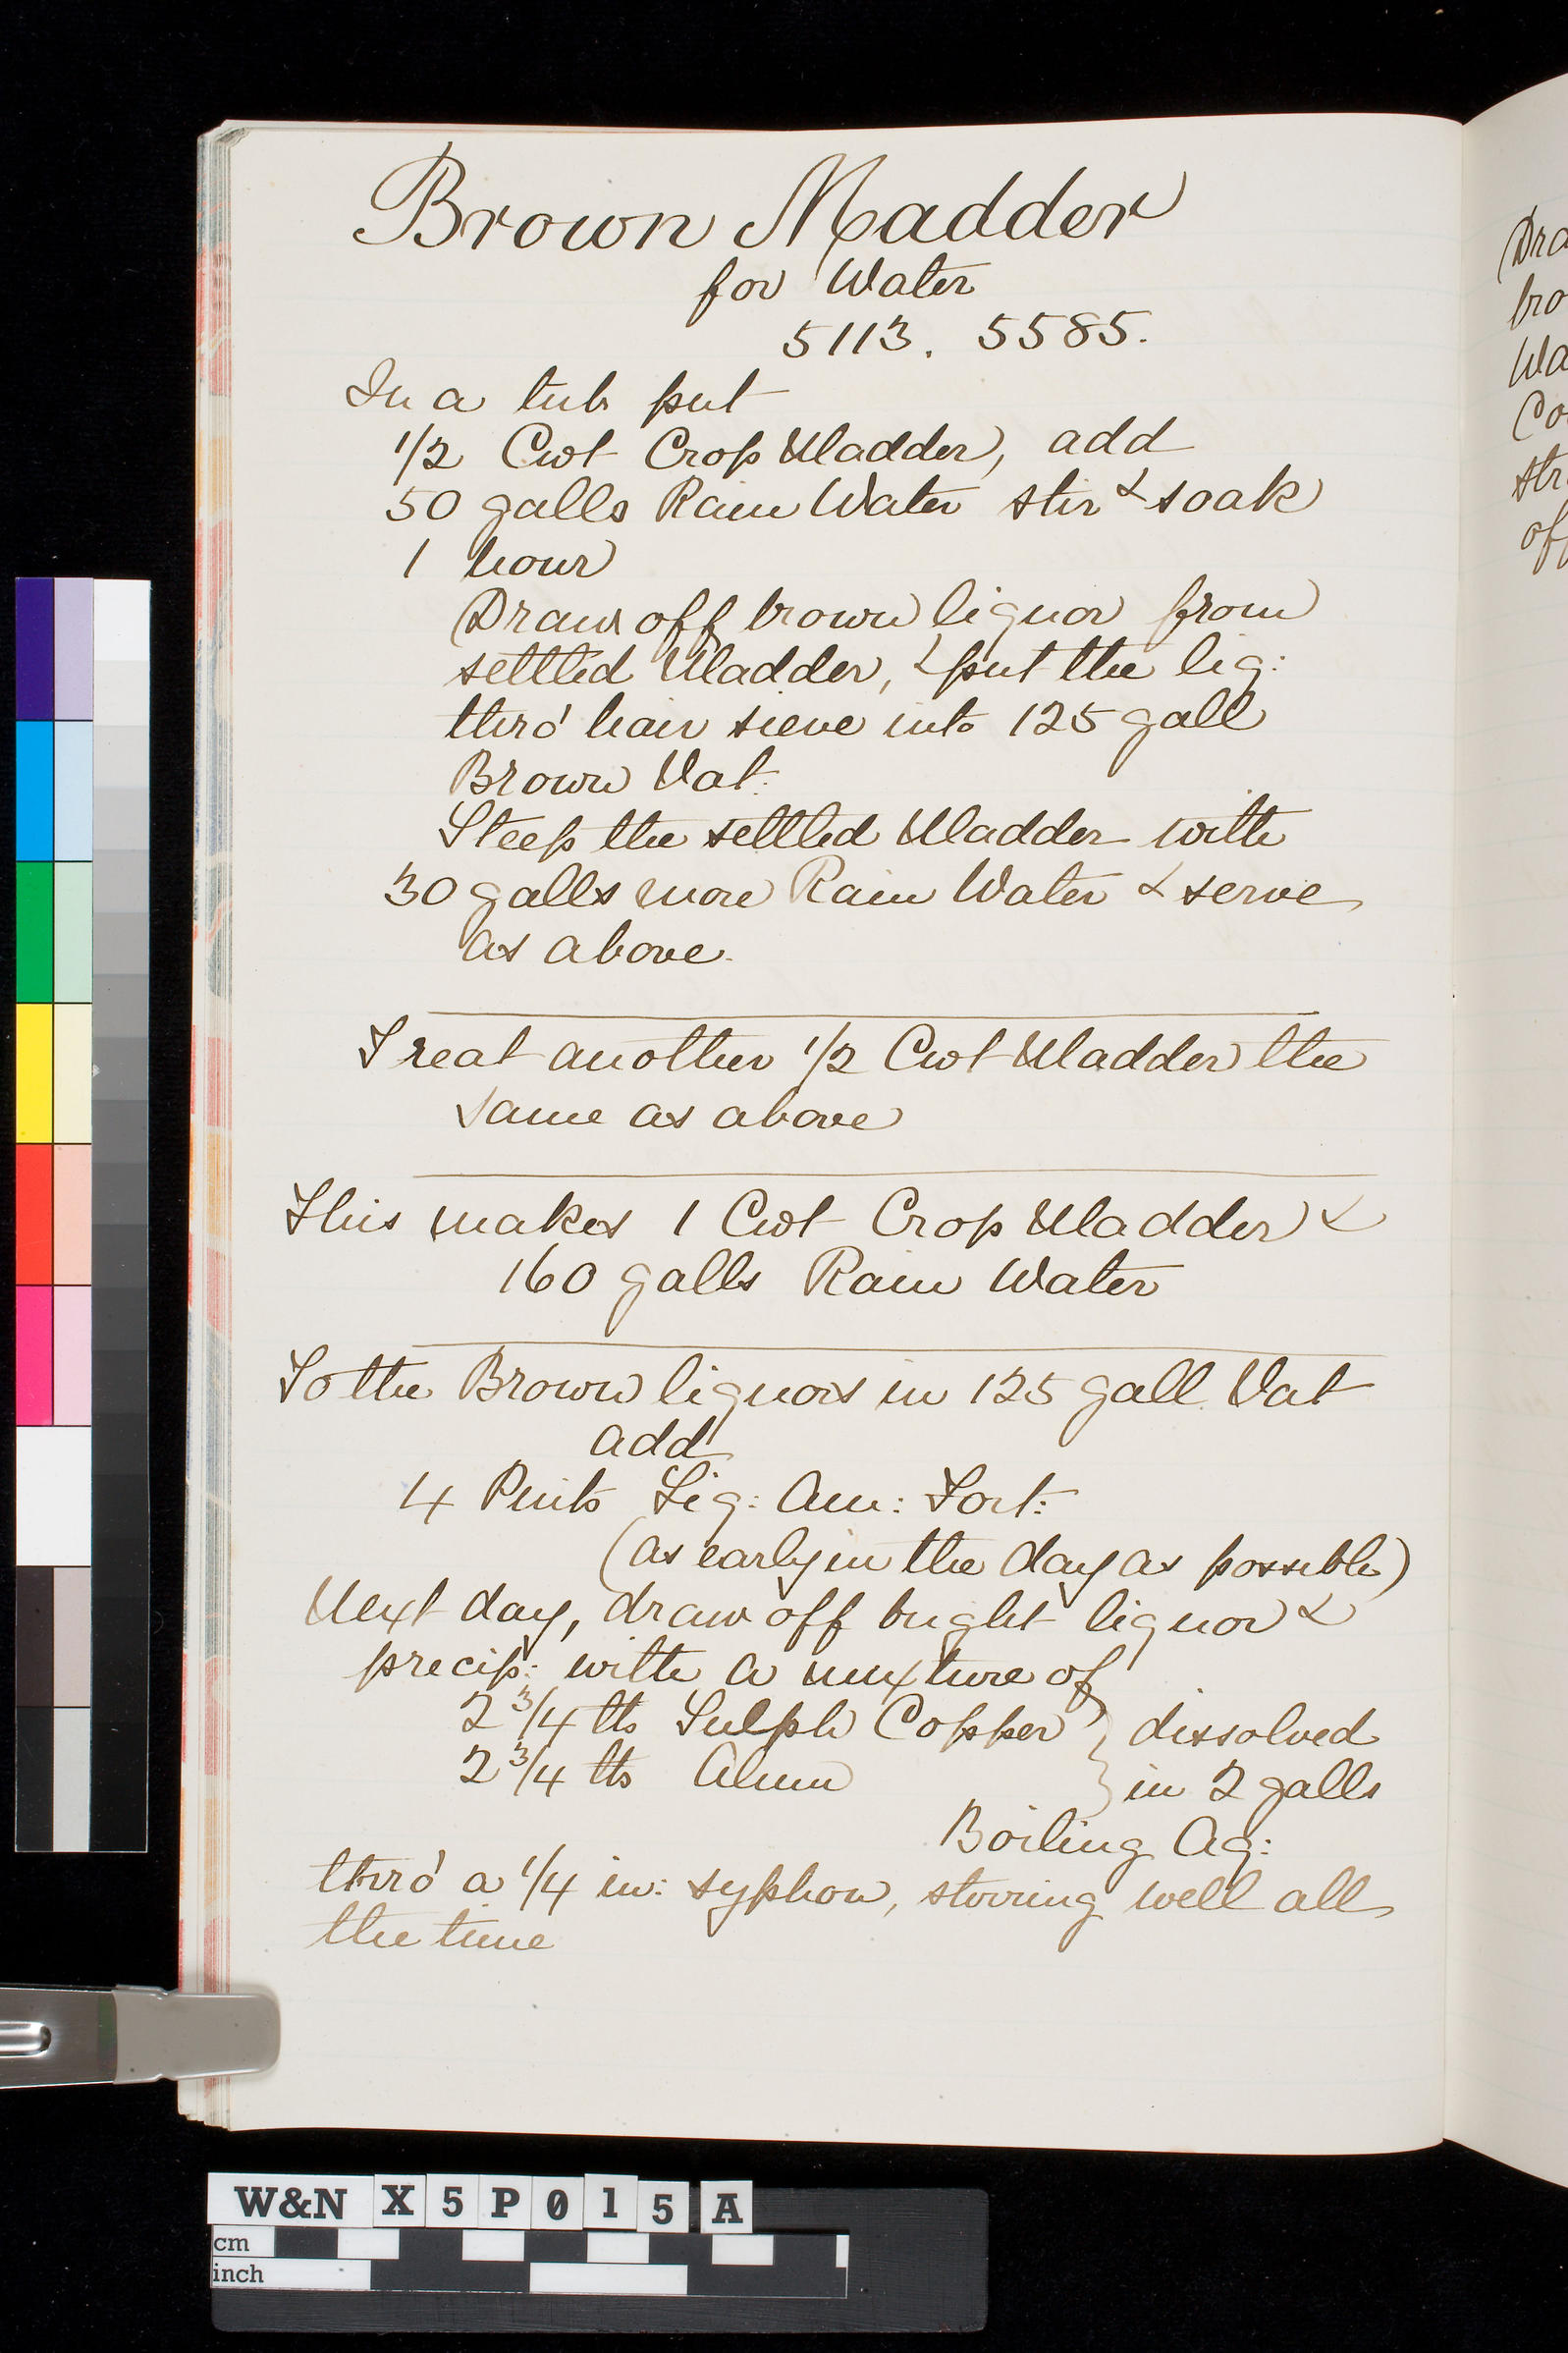 Brown Madder
for Water
5113. 5585.
In a tub put
1/2 Cwt Crop Madder, add
50 galls Rain Water stir & soak
1 hour
Draw off brown liquor from
settled Madder, & put the liq:
thro' hair sieve into 125 gall
Brown Vat.
Steep the settled Madder with
30 galls more Rain Water & serve
as above.
Treat another 1/2 Cwt Madder the
same as above
This makes 1 Cwt Crop Madder &
160 galls Rain Water
To the Brown liquors in 125 gall Vat
add
4 Pints Liq: Am: Fort:
(as early in the day as possible)
Next day, draw off bright liquor &
precip: with a mixture of
2 3/4 lbs Sulph Copper } dissolved
2 3/4 lbs Alum } in 2 galls
Boiling Aq:
thro' a 1/4 in: syphon, stirring well all
the time
Dra
bro
Wa
Co
str
of
W&N X5P015A
cm
inch